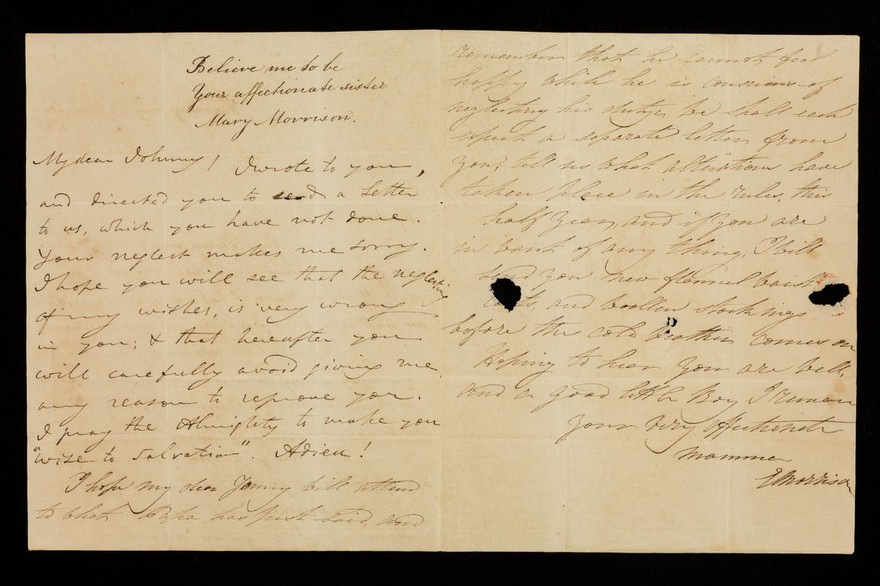 Believe me to be
Your affectionate sister
Mary Morrison.
My dear Johnny! I wrote to you,
and directed you to send a Letter
to us, which you have not done.
Your neglect makes me sorry.
I hope you will see that the neglecting
of my wishes, is very wrong
in you; & that hereafter you
will carefully avoid giving me
any reason to reprove you.
I pray the Almighty to make you
"wise to Salvation". Adieu!
I hope my dear Jonny will attend
to what Papa has just said, and
remember that he cannot feel
happy while he is conscious of
neglecting his duty, we shall each
expect a separate letter from
you, tell us what alterations have
taken place in the rules, this
half year, and if you are
in want of any thing, I will
send you new flannel waist
and woollen stockings
before the cold weather comes on
Hoping to hear you are well
and a good little Boy I remain
your very affectionate
Mamma
E Morrison